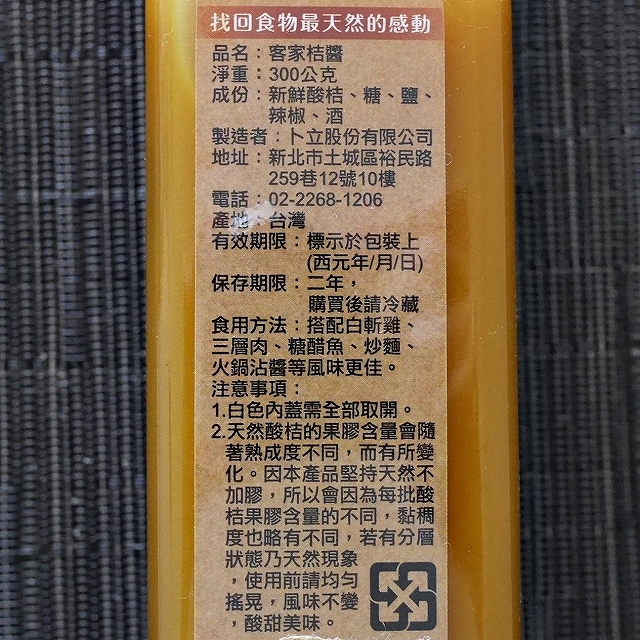 找回食物最天然的感動
品名：客家桔醬
淨重：300公克
成份：新鮮酸桔、糖、鹽、
辣椒、酒
製造者：卜立股份有限公司
地址：新北市土城區裕民路
259巷12號10樓
電話：02-2268-1206
產地：台灣
有效期限：標示於包裝上
(西元年/月/日)
保存期限：二年，
購買後請冷藏
食用方法：搭配白斬雞、
三層肉、糖醋魚、炒麵、
火鍋沾醬等風味更佳。
注意事項：
1.白色內蓋需全部取開。
2.天然酸桔的果膠含量會隨
著熟成度不同，而有所變
化。因本產品堅持天然不
加膠，所以會因為每批酸
桔果膠含量的不同，黏稠
度也略有不同，若有分層
狀態乃天然現象
，使用前請均勻
搖晃，風味不變
，酸甜美味。